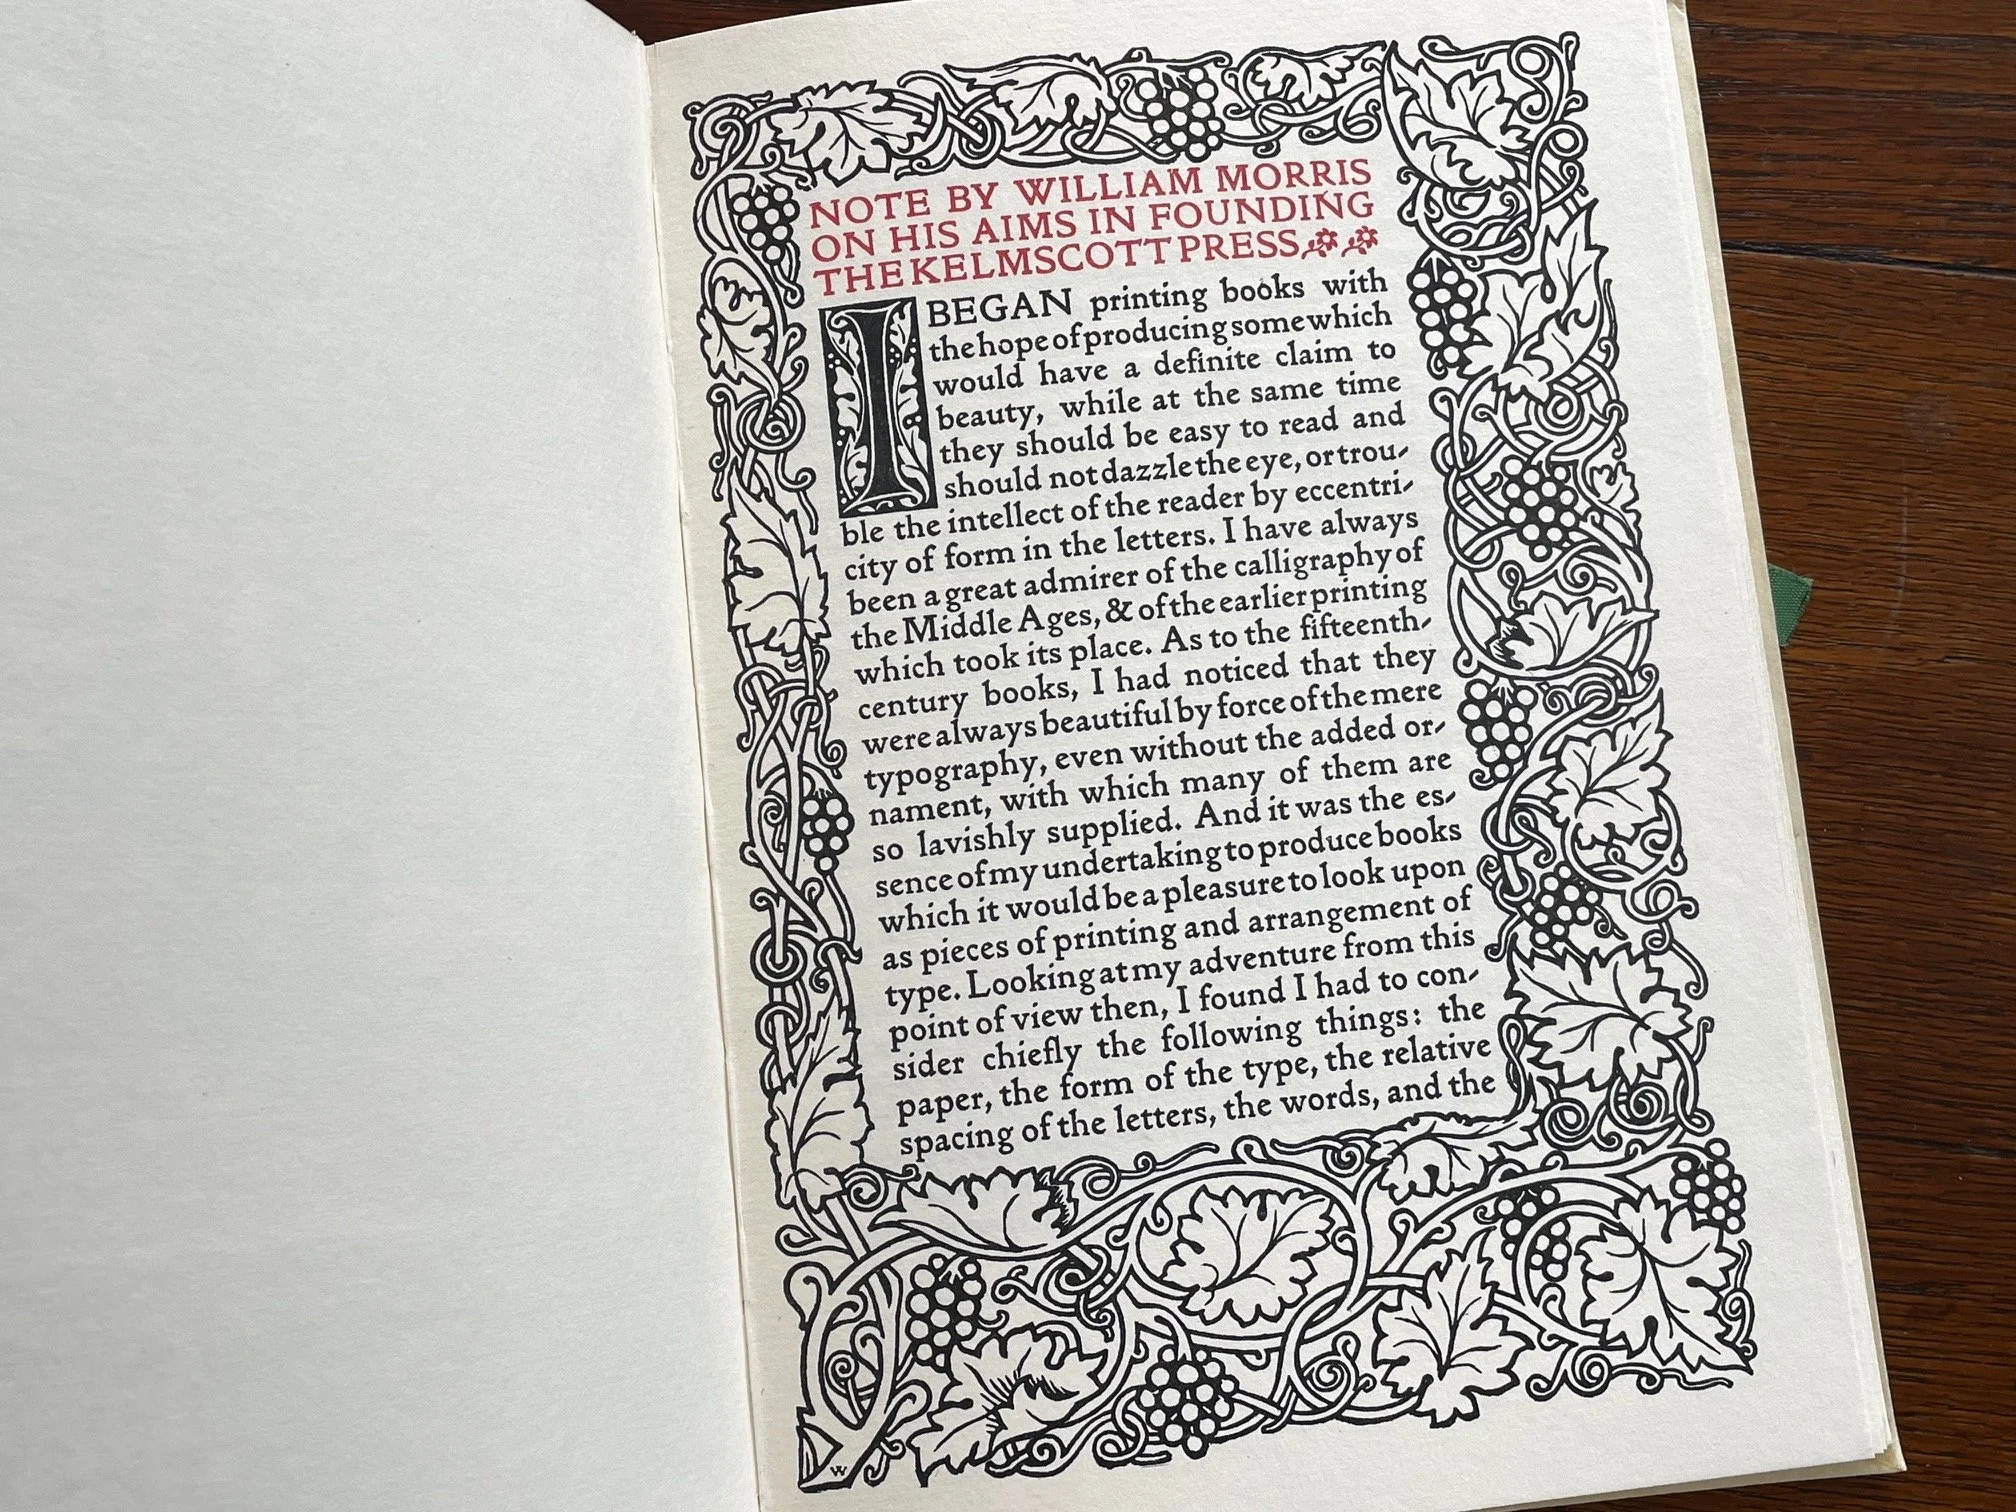 NOTE BY WILLIAM MORRIS
ON HIS AIMS IN FOUNDING
THE KELMSCOTT PRESS
I BEGAN printing books with
the hope of producing some which
would have a definite claim to
beauty, while at the same time
they should be easy to read and
should not dazzle the eye, or trou-
ble the intellect of the reader by eccentri-
city of form in the letters. I have always
been a great admirer of the calligraphy of
the Middle Ages, & of the earlier printing
which took its place. As to the fifteenth-
century books, I had noticed that they
were always beautiful by force of the mere
typography, even without the added or-
nament, with which many of them are
so lavishly supplied. And it was the es-
sence of my undertaking to produce books
which it would be a pleasure to look upon
as pieces of printing and arrangement of
type. Looking at my adventure from this
point of view then, I found I had to con-
sider chiefly the following things: the
paper, the form of the type, the relative
spacing of the letters, the words, and the
W